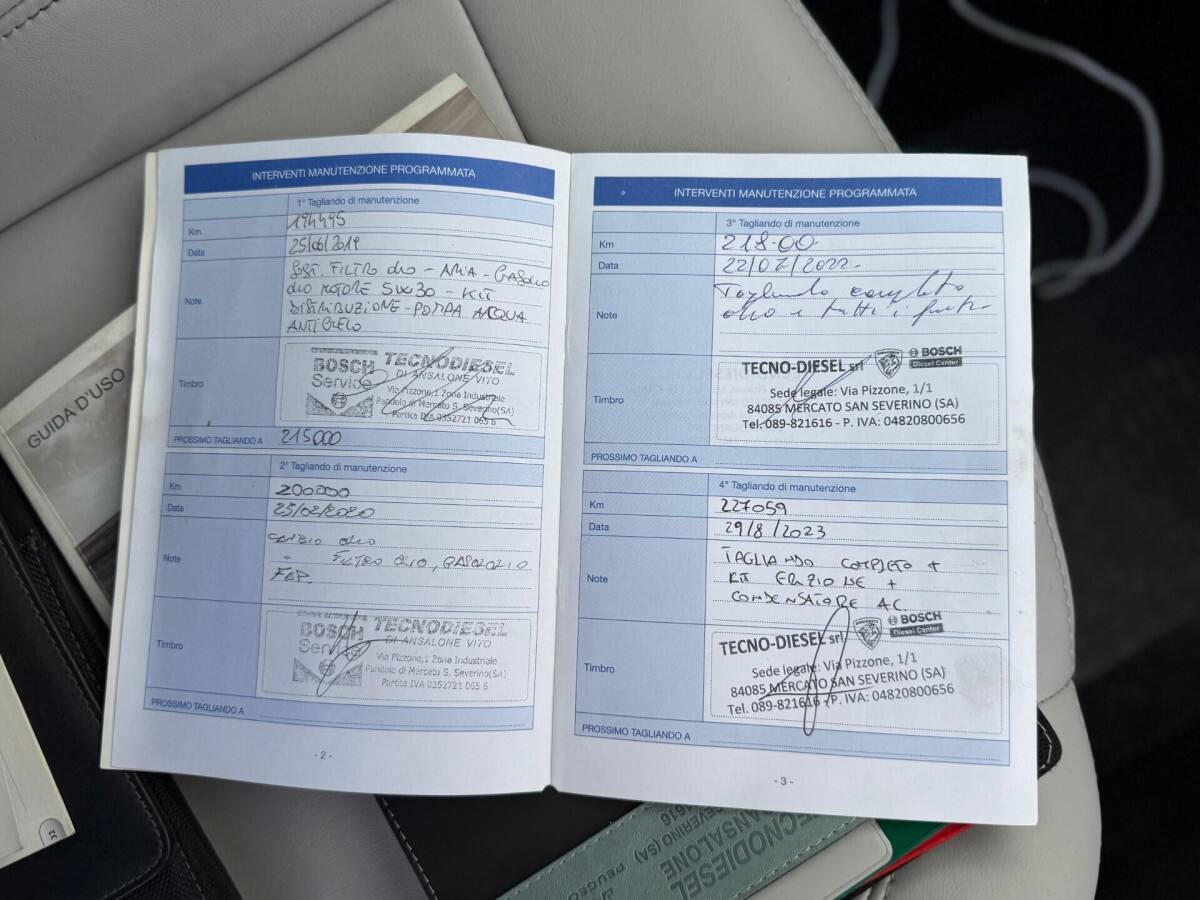 GUIDA D'USO
INTERVENTI MANUTENZIONE PROGRAMMATA
1° Tagliando di manutenzione
Km 194495
Data 25/06/2019
Note SOST. FILTRO OLIO - ARIA - GASOLIO
OLIO MOTORE 5W30 - KIT
DISTRIBUZIONE - POMPA ACQUA
ANTIGELO
Timbro
BOSCH
Service
TECNODIESEL
DI ANSALONE VITO
Via Pizzone,1 Zona Industriale
Pandola di Mercato S. Severino(SA)
Partita IVA 0352721 065 6
PROSSIMO TAGLIANDO A 215000
2° Tagliando di manutenzione
Km 200000
Data 25/02/2020
Note CAMBIO OLIO
" FILTRO OLIO, GASOLIO
Timbro
BOSCH
Service
TECNODIESEL
DI ANSALONE VITO
Via Pizzone,1 Zona Industriale
Pandola di Mercato S. Severino(SA)
Partita IVA 0352721 065 6
PROSSIMO TAGLIANDO A
- 2 -
INTERVENTI MANUTENZIONE PROGRAMMATA
3° Tagliando di manutenzione
Km 218.00
Data 22/07/2022
Note Tagliando completo
olio e tutti i filtri
Timbro
TECNO-DIESEL srl
BOSCH
Diesel Center
Sede legale: Via Pizzone, 1/1
84085 MERCATO SAN SEVERINO (SA)
Tel. 089-821616 - P. IVA: 04820800656
PROSSIMO TAGLIANDO A
4° Tagliando di manutenzione
Km 227059
Data 29/8/2023
Note TAGLIANDO COMPLETO +
KIT +
CONDENSATORE AC
Timbro
TECNO-DIESEL srl
BOSCH
Diesel Center
Sede legale: Via Pizzone, 1/1
84085 MERCATO SAN SEVERINO (SA)
Tel. 089-821616 - P. IVA: 04820800656
PROSSIMO TAGLIANDO A
- 3 -
32
TECNODIESEL
ANSALONE
SEVERINO (SA)
PEUGEO